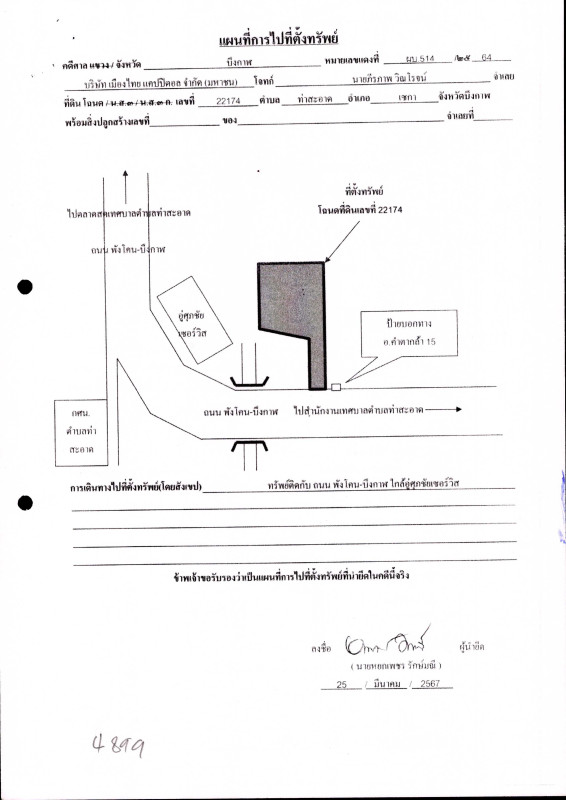 แผนที่การไปที่ตั้งทรัพย์
คดีศาล แขวง / จังหวัด บึงกาฬ หมายเลขแดงที่ ผบ.514 /๒๕ 64
บริษัท เมืองไทย แคปปิตอล จำกัด (มหาชน) โจทก์ นายภีรภาพ วิณโรจน์ จำเลย
ที่ดิน โฉนด / น.ส.๓ / น.ส.๓ ก. เลขที่ 22174 ตำบล ท่าสะอาด อำเภอ เซกา จังหวัดบึงกาฬ
พร้อมสิ่งปลูกสร้างเลขที่ ของ จำเลยที่
ที่ตั้งทรัพย์
โฉนดที่ดินเลขที่ 22174
ไปตลาดสดเทศบาลตำบลท่าสะอาด
ถนน พังโคน-บึงกาฬ
อู่ศุภชัย
เซอร์วิส
ป้ายบอกทาง
อ.คำตากล้า 15
กศน.
ตำบลท่า
สะอาด
ถนน พังโคน-บึงกาฬ ไปสำนักงานเทศบาลตำบลท่าสะอาด
การเดินทางไปที่ตั้งทรัพย์(โดยสังเขป) ทรัพย์ติดกับ ถนน พังโคน-บึงกาฬ ใกล้อู่ศุภชัยเซอร์วิส
ข้าพเจ้าขอรับรองว่าเป็นแผนที่การไปที่ตั้งทรัพย์ที่นำยึดในคดีนี้จริง
ลงชื่อ ผู้นำยึด
( นายหยกเพชร รักษ์มณี )
25 / มีนาคม / 2567
4899